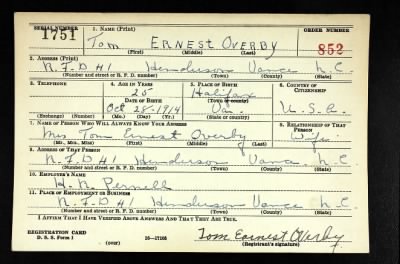 SERIAL NUMBER 1. NAME (Print) ORDER NUMBER
1751 Tom ERNEST OVERBY 852
(First) (Middle) (Last)
2. ADDRESS (Print)
R.F.D #1 Henderson Vance N.C.
(Number and street or R. F. D. number) (Town) (County) (State)
3. TELEPHONE 4. AGE IN YEARS 5. PLACE OF BIRTH 6. COUNTRY OF CITIZENSHIP
25 Halifax
DATE OF BIRTH (Town or county)
Oct 28 - 1914 Va. U.S.A.
(Exchange) (Number) (Mo.) (Day) (Yr.) (State or country)
7. NAME OF PERSON WHO WILL ALWAYS KNOW YOUR ADDRESS 8. RELATIONSHIP OF THAT PERSON
Mrs Tom Ernest Overby Wife
(Mr., Mrs., Miss) (First) (Middle) (Last)
9. ADDRESS OF THAT PERSON
R.F.D #1 Henderson Vance N.C
(Number and street or R. F. D. number) (Town) (County) (State)
10. EMPLOYER'S NAME
H. N. Pernell
11. PLACE OF EMPLOYMENT OR BUSINESS
R.F.D #1 Henderson Vance N.C
(Number and street or R. F. D. number) (Town) (County) (State)
I AFFIRM THAT I HAVE VERIFIED ABOVE ANSWERS AND THAT THEY ARE TRUE.
REGISTRATION CARD
D. S. S. Form 1 (over) 16—17105 Tom Earnest Overby
(Registrant's signature)